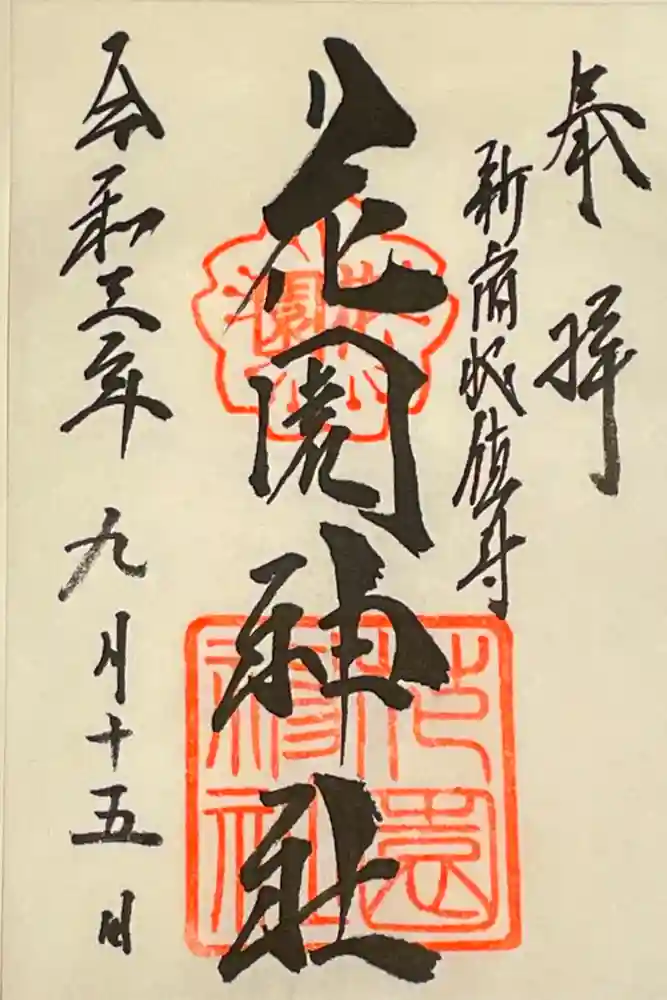 奉拝
新宿総鎮守
花園神社
花園
花園神社
令和三年九月十五日